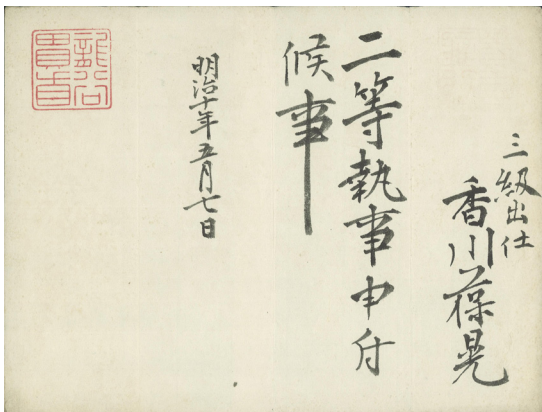 三級出仕
香川葆晃
二等執事申付
候事
明治十年五月七日